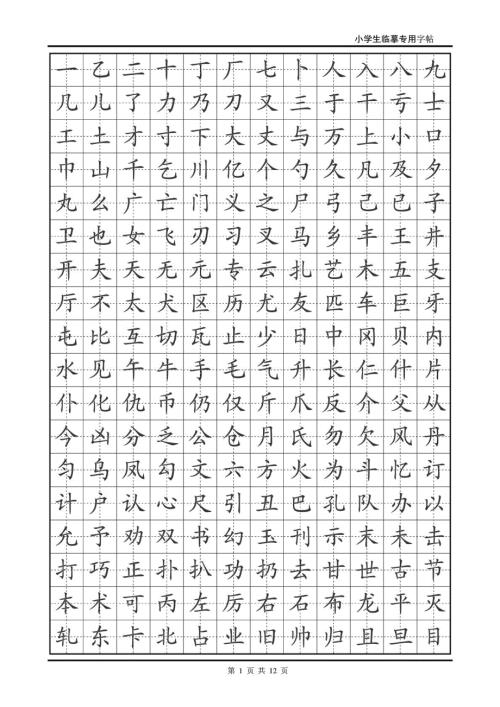 小学生临摹专用字帖
一乙二十丁厂七卜人入八九
几儿了力乃刀又三于干亏士
工土才寸下大丈与万上小口
巾山千乞川亿个勺久凡及夕
丸么广亡门义之尸弓己已子
卫也女飞刃习叉马乡丰王井
开夫天无元专云扎艺木五支
厅不太犬区历尤友匹车巨牙
屯比互切瓦止少日中冈贝内
水见午牛手毛气升长仁什片
仆化仇币仍仅斤爪反介父从
今凶分乏公仓月氏勿欠风丹
匀乌凤勾文六方火为斗忆订
计户认心尺引丑巴孔队办以
允予劝双书幻玉刊示末未击
打巧正扑扒功扔去甘世古节
本术可丙左厉右石布龙平灭
轧东卡北占业旧帅归且旦目
第 1 页 共 12 页